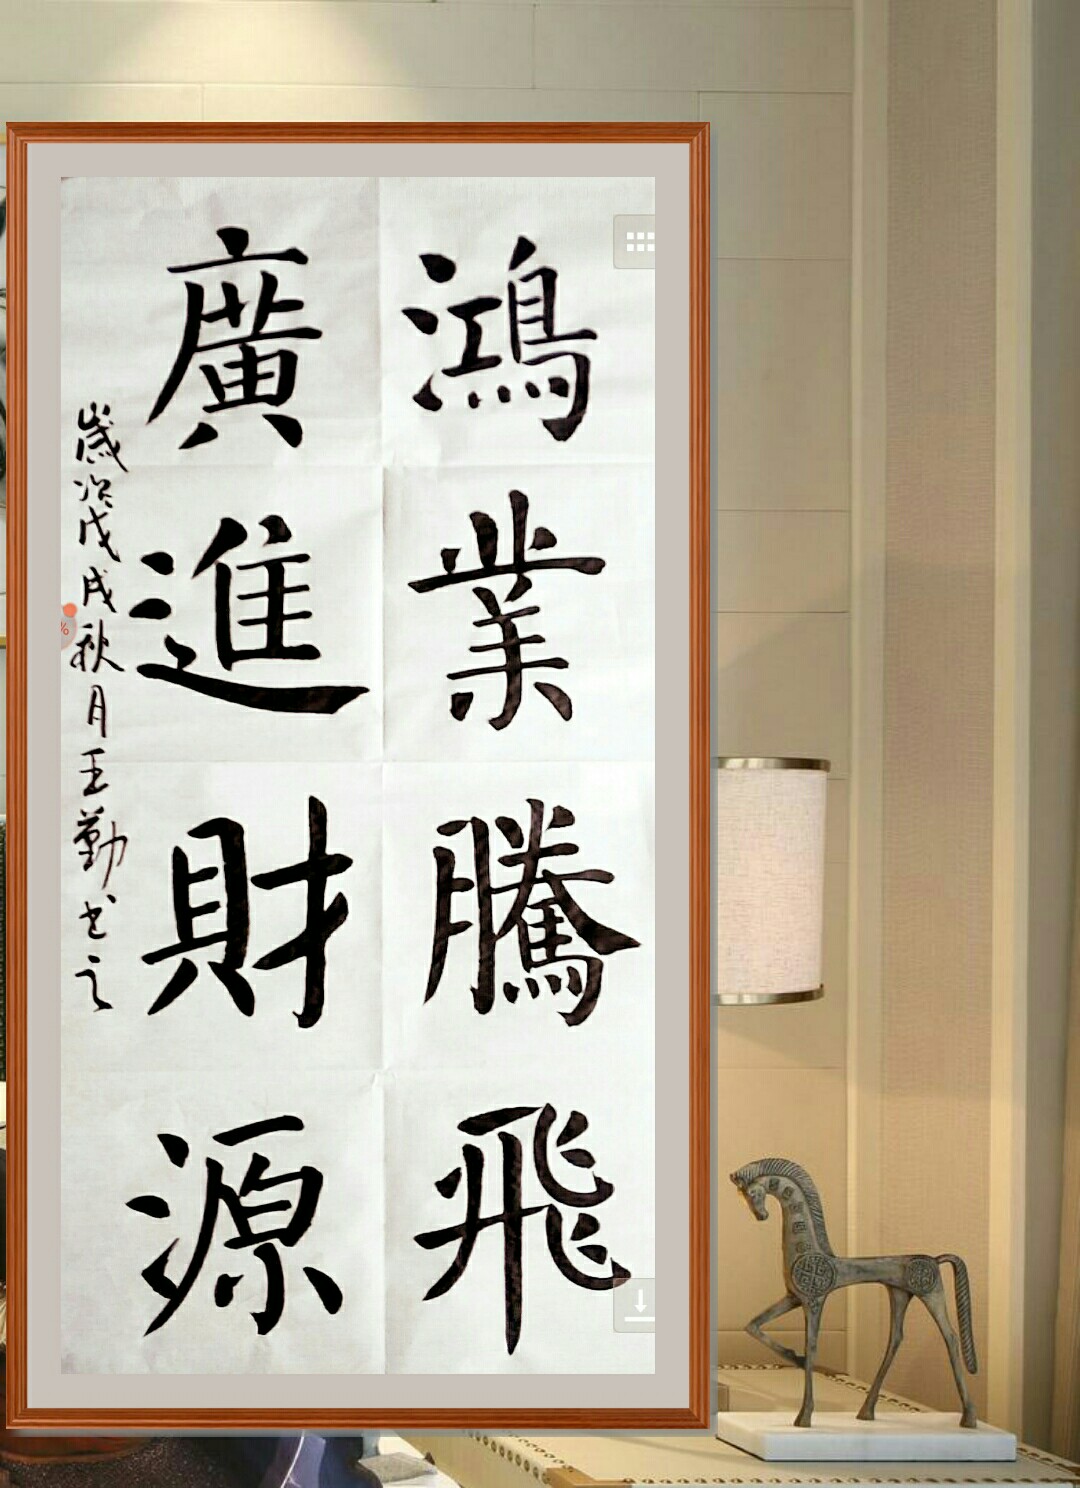 鴻業騰飛
廣進財源
歲次戊戌秋月王勤书之
%